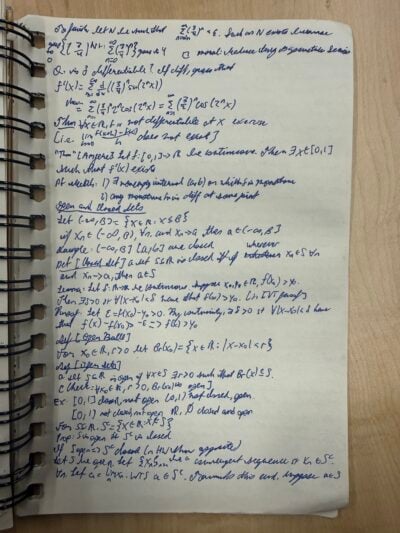 let N be such that Σ (3/4)^n < ε. Such an N exists because
Q: Is f differentiable? If diff, guess that
f'(x) = Σ d/dx((3/4)^n sin(2^n x))
= Σ (3/4)^n 2^n cos(2^n x) = Σ (3/2)^n cos(2^n x)
Thm ∀x∈R, f is not differentiable at x exercise
[i.e. lim f(x+h)-f(x) / h does not exist]
"Thm" (Ampere) Let f: [0,1]→R be continuous. Then ∃x∈[0,1]
such that f'(x) exists
Pf sketch: 1) ∃ nonempty interval (a,b) on which f is monotone
2) any monotone function is diff at some point
Open and Closed Sets
Let (-∞,B] = {x∈R: x≤B}
if x_n ∈ (-∞,B], ∀n and x_n→a, then a∈(-∞,B]
Example: (-∞,B] [a,b] are closed
Def [Closed Set] A set S⊆R is closed if whenever x_n∈S ∀n
and x_n→a, then a∈S
Lemma: Let f: R→R be continuous suppose x_0,y_0∈R, f(x_0)>y_0.
Then ∃δ>0 st ∀|x-x_0|<δ have that f(x)>y_0. (in IVT proof)
Proof: Let ε=f(x_0)-y_0>0. By continuity, ∃δ>0 st ∀|x-x_0|<δ have
that f(x)-f(x_0)>-ε => f(x)>y_0
Def [Open Balls]
For x_0∈R, r>0 let B_r(x_0) = {x∈R: |x-x_0|<r}
Def [Open Sets]
A set S⊆R is open if ∀x∈S ∃r>0 such that B_r(x)⊆S.
[Check: ∀x_0∈R, r>0, B_r(x_0) is open]
Ex: [0,1] closed, not open (0,1) not closed, open
[0,1) not closed, not open R, ∅ closed and open
For S⊆R, S^c = {x∈R: x∉S}
Prop: S is open iff S^c is closed
Pf S open => S^c closed (in HW show opposite)
Let S be open. Let {x_n} be a convergent sequence st x_n∈S^c
∀n. Let a = lim x_n. WTS a∈S^c. suppose a∈S